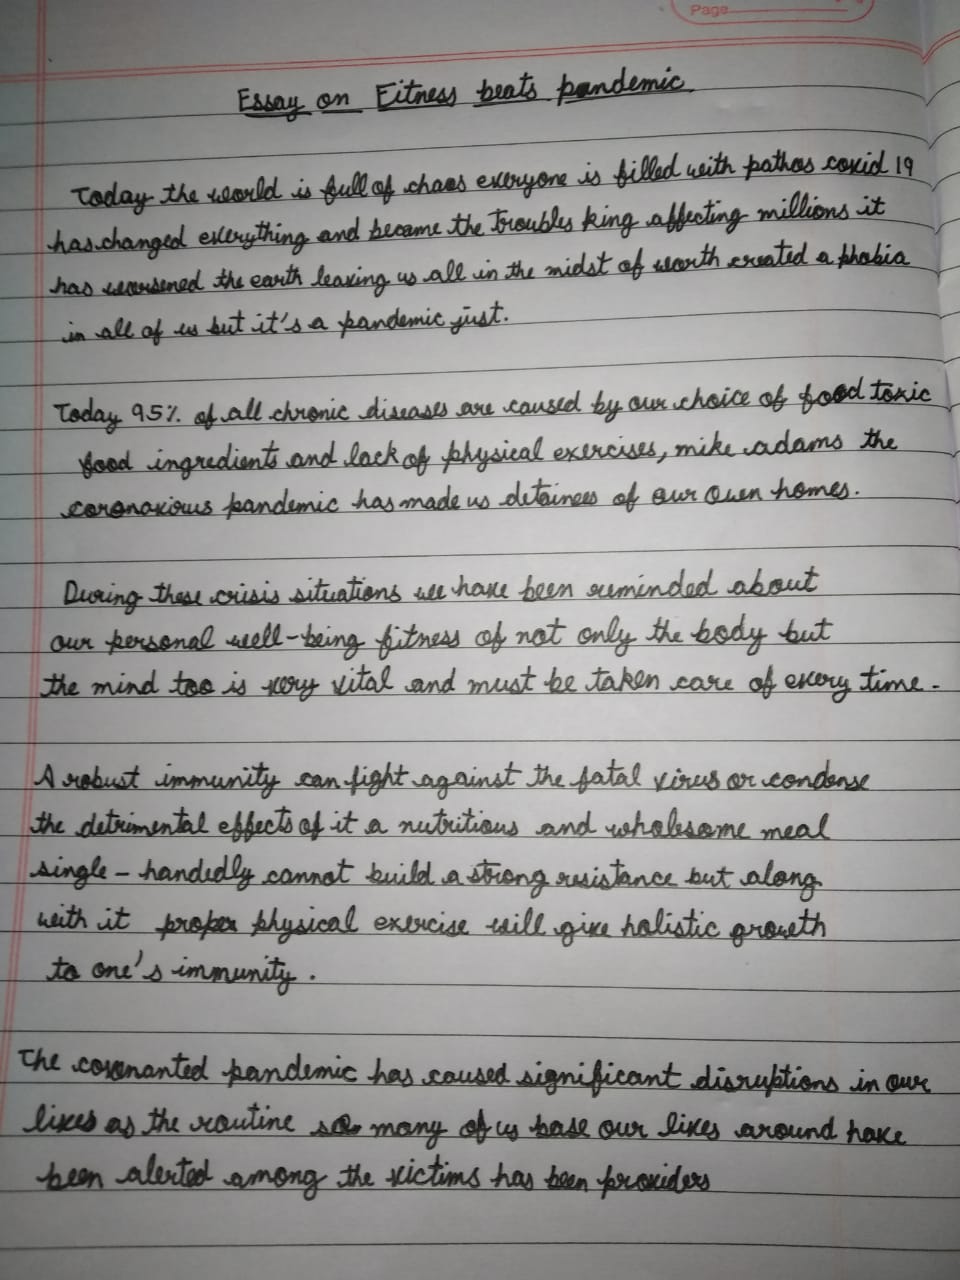 Page
Essay on Fitness beats pandemic
Today the world is full of chaos everyone is filled with pathos covid 19
has changed everything and became the troubles king affecting millions it
has worsened the earth leaving us all in the midst of worth created a phobia
in all of us but it's a pandemic just.
Today 95% of all chronic diseases are caused by our choice of food toxic
food ingredients and lack of physical exercises, mike adams the
coronavirus pandemic has made us detainees of our own homes.
During these crisis situations we have been reminded about
our personal well-being fitness of not only the body but
the mind too is very vital and must be taken care of every time.
A robust immunity can fight against the fatal virus or condense
the detrimental effects of it a nutritious and wholesome meal
single-handedly cannot build a strong resistance but along
with it proper physical exercise will give holistic growth
to one's immunity.
The pandemic has caused significant disruptions in our
lives as the routine so many of us base our lives around have
been alerted among the victims has been providers